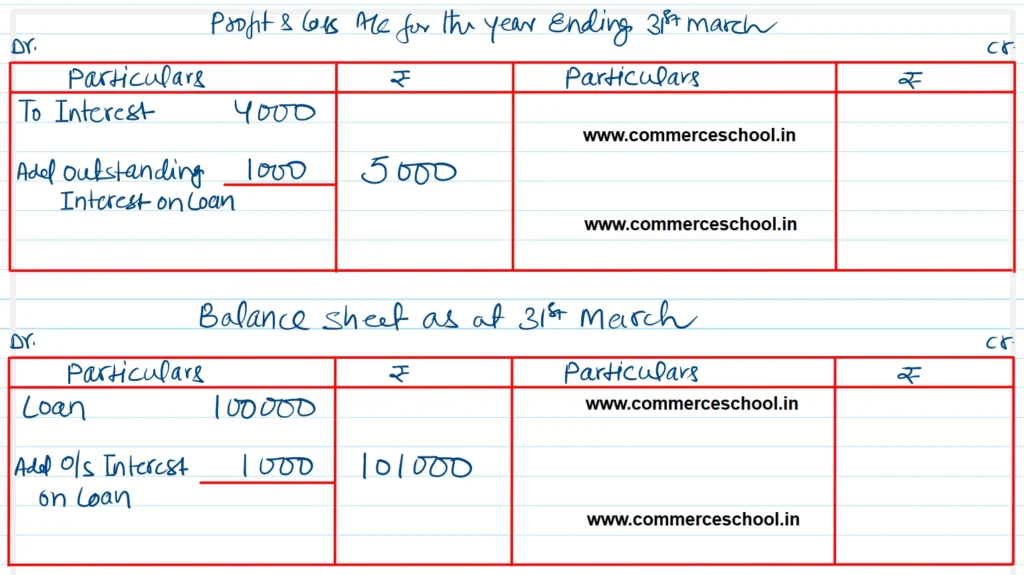 Profit & loss A/c for the year Ending 31st march
Dr. Cr.
Particulars ₹ Particulars ₹
To Interest 4000
www.commerceschool.in
Add Outstanding 1000 5000
Interest on Loan
www.commerceschool.in
Balance sheet as at 31st March
Dr. Cr.
Particulars ₹ Particulars ₹
Loan 100000 www.commerceschool.in
Add O/s Interest 1000 101000
on Loan
www.commerceschool.in